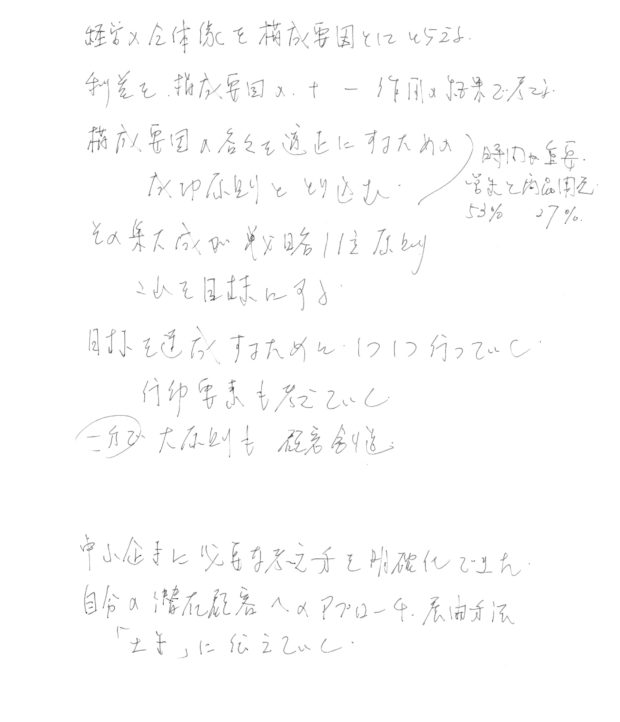 経営の全体像を構成要因としてとらえる.
利益を.構成要因の.+ - 作用の結果で考える.
構成要因の各々を適正にするための
成功原則をとり込む.
時間が重要.
営業と商品開発
53% 27%.
その集大成が戦略11主原則
これを目標にする.
目標を達成するために.1つ1つ行っていく.
成功要素も考えていく
一方で 大原則も 顧客創造.
中小企業に必要な考え方を明確化できた.
自分の潜在顧客へのアプローチ.展開手法
「 」に伝えていく.